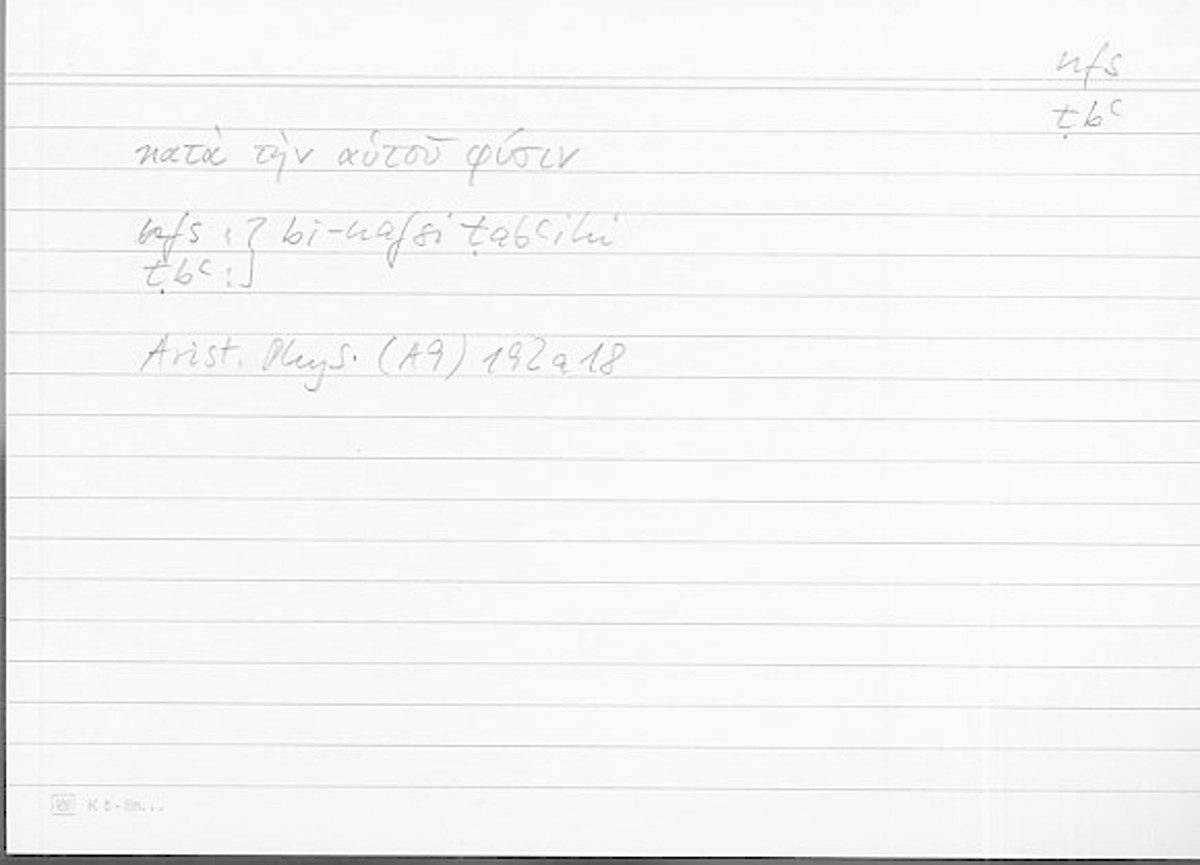 nfs
ṭbʿ
κατὰ τὴν αὑτοῦ φύσιν
nfs : } bi-nafsi ṭabʿihī
ṭbʿ : }
Arist. Phys. (A9) 192a18